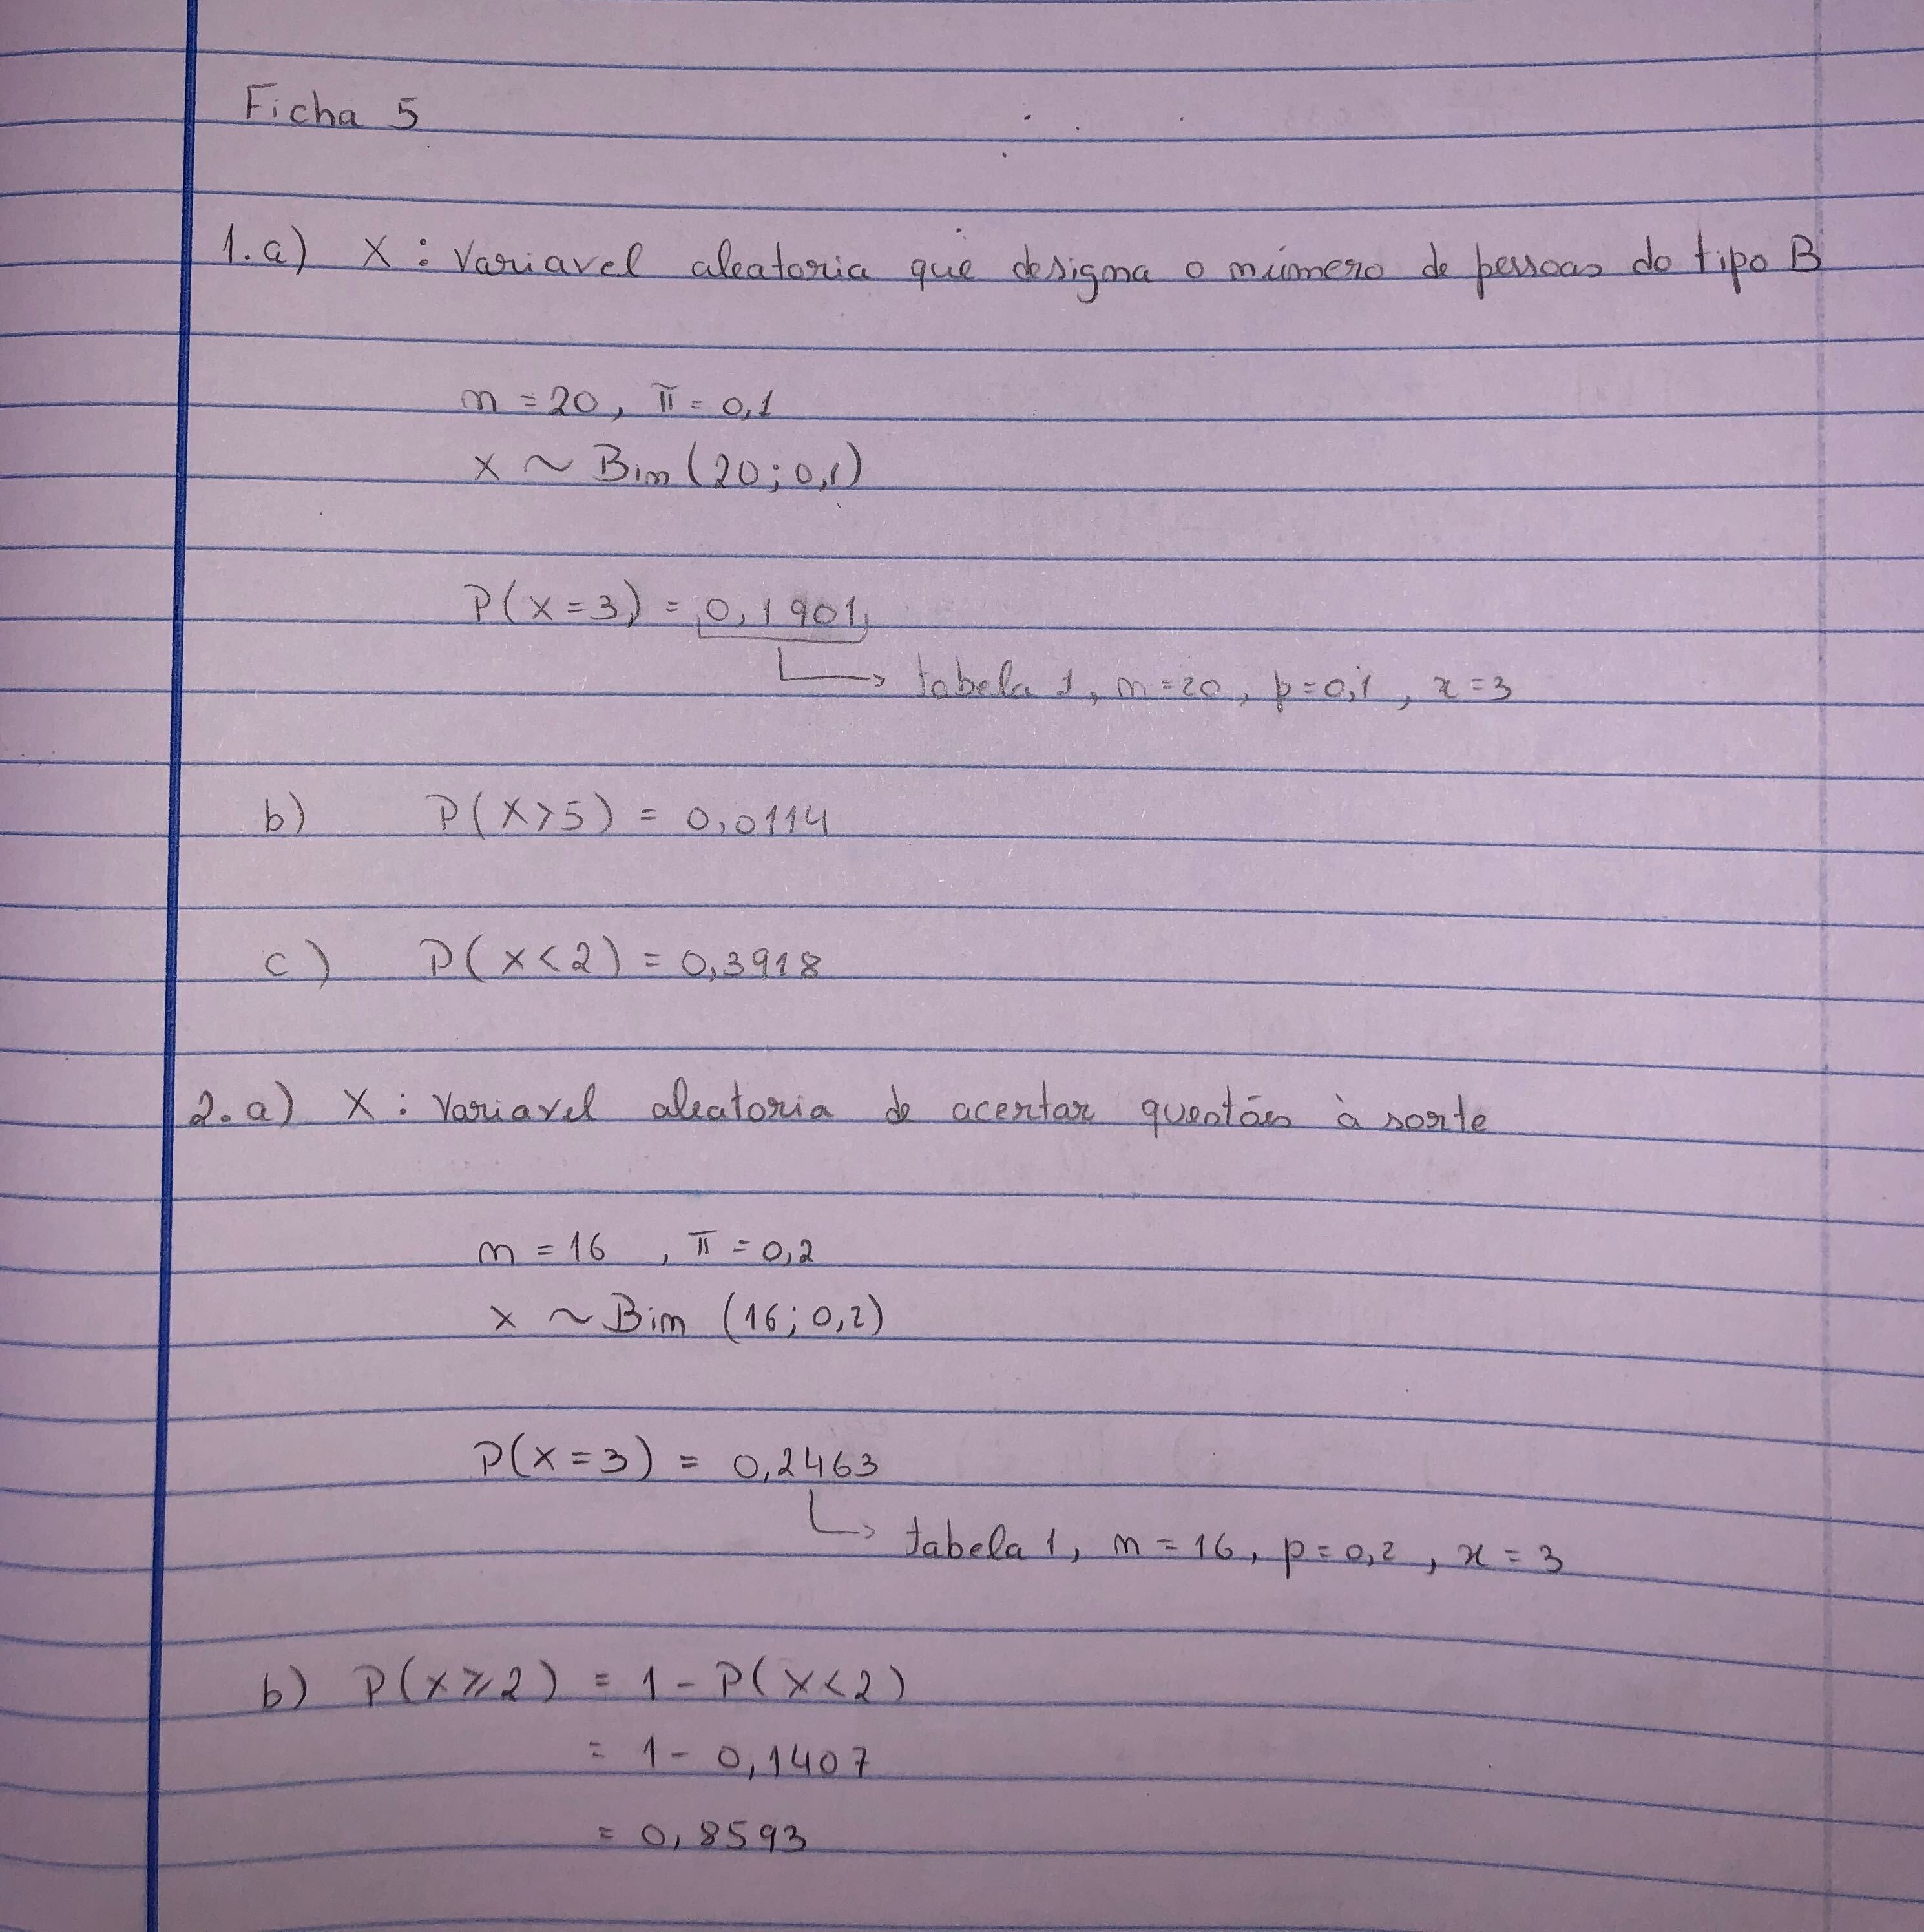 Ficha 5
1.a) X : Variavel aleatoria que designa o número de pessoas do tipo B
n = 20, π = 0,1
x ~ Bin (20; 0,1)
P(x=3) = 0,1901
↳ tabela 1, n=20, p=0,1, x=3
b) P(X>5) = 0,0114
c) P(x<2) = 0,3918
2.a) X : Variavel aleatoria de acertar questões à sorte
n = 16 , π = 0,2
x ~ Bin (16; 0,2)
P(x=3) = 0,2463
↳ tabela 1, n = 16, p = 0,2, x = 3
b) P(x⩾2) = 1 - P(X<2)
= 1 - 0,1407
= 0,8593